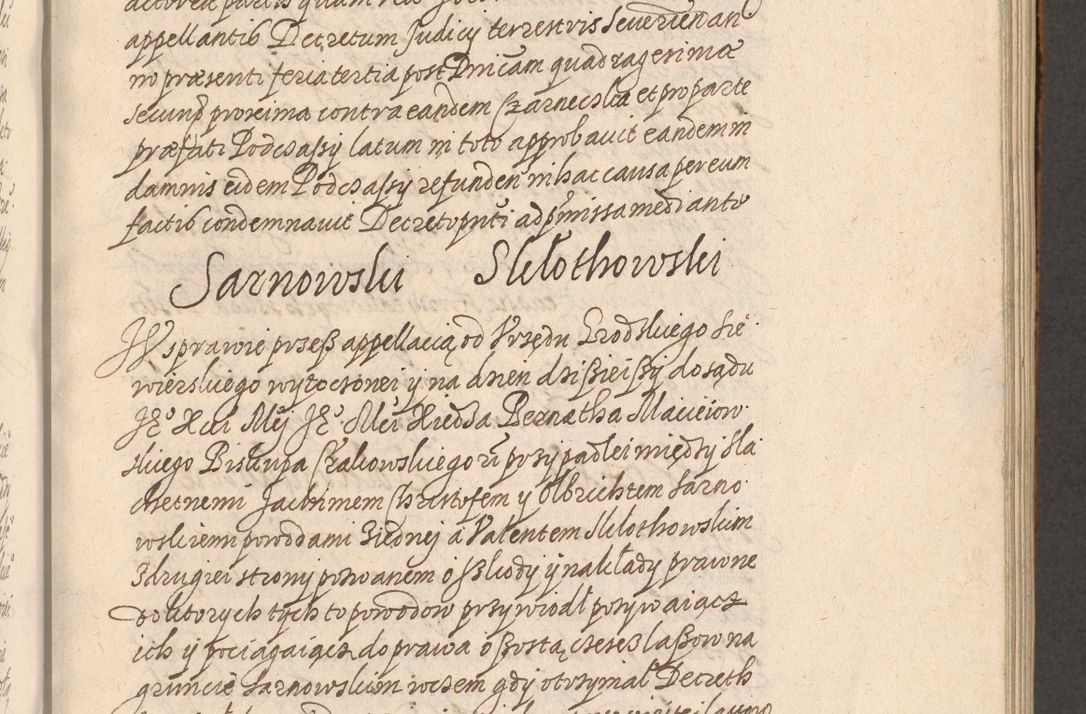 appellantis Decretum Judicij terrestris Severien an
no præsenti feria tertia post Dnicam quadragesimæ
secund proxima contra eandem Czarnecska et pro parte
præfati Podczassÿ latum in toto approbavit eandem in
damnis eidem Podczassÿ refunden in hac causa per eum
factis condemnavit Decreto pnti ad pmissa mediante
Sarnowski Skłothowski
W sprawie przesz appellacią od Vrzędu Grodskiego Sie
wierskiego wytoczonei ÿ na dzien dzisieiszÿ do sądu
Je° Xcei Mcÿ Je° Mci Xiedza Bernatha Macieiow
skiego Biskupa Krakowskiego przÿpadłei międzÿ sła
chetnemi Jachimem Christofem y Olbrichtem Sarno
wskiemi powodami z iednej a Valentem Skłothowskim
z drugiei stronÿ pozwanem o szkodÿ ÿ nakładÿ prawne
do ktorych tÿch to powodow przÿwiodł pozÿwaiącz
ich ÿ pociągaiącz do prawa o sostą czesc z lassow na
gruncie Sarnowskim wczem gdÿ otrzÿmał Decreth